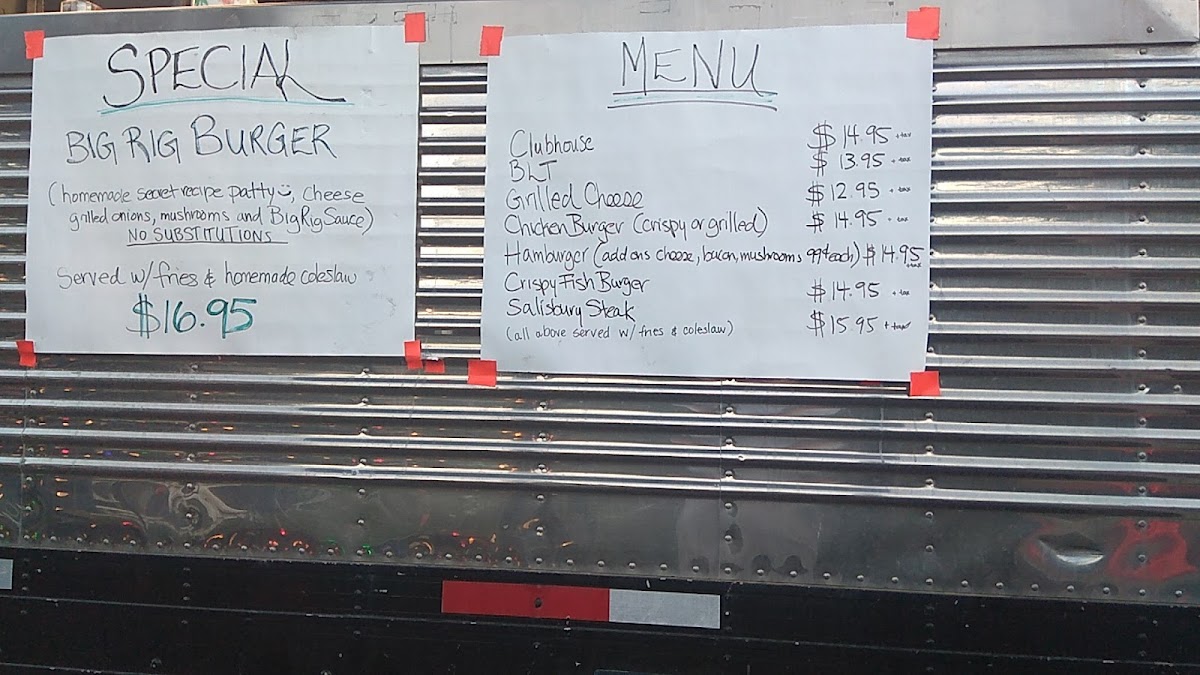 SPECIAL
BIG RIG BURGER
(homemade secret recipe patty, cheese
grilled onions, mushrooms and Big Rig Sauce)
NO SUBSTITUTIONS
Served w/ fries & homemade coleslaw
$16.95
MENU
Clubhouse $14.95 + tax
BLT $13.95 + tax
Grilled Cheese $12.95 + tax
Chicken Burger (crispy or grilled) $14.95 + tax
Hamburger (add ons cheese, bacon, mushrooms 99¢ each) $14.95 + tax
Crispy Fish Burger $14.95 + tax
Salisbury Steak $15.95 + tax
(all above served w/ fries & coleslaw)